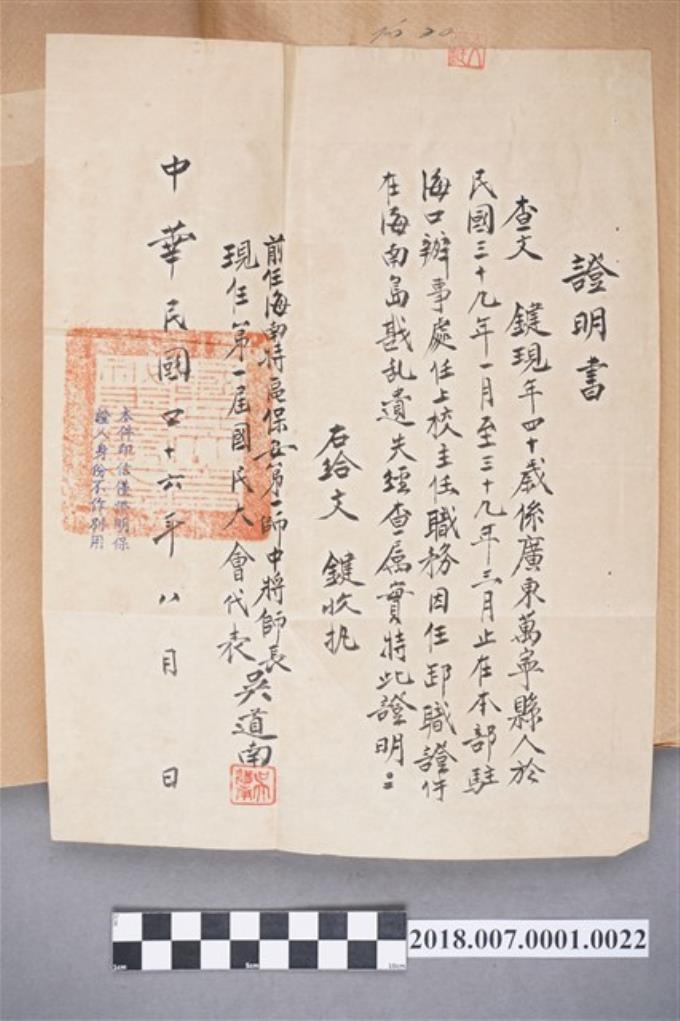 證明書
查文　鍵現年四十歲係廣東萬寧縣人於
民國三十九年一月至三十九年三月止在本部駐
海口辦事處任上校主任職務因任卸職證件
在海南島戡乱遺失經查屬實特此證明
右給文　鍵收扎
前任海南特區保安第一師中將師長
現任第一屆國民大會代表吳道南
中華民國四十六年八月　日
本件印信僅證明保
證人身份不作別用
2018.007.0001.0022